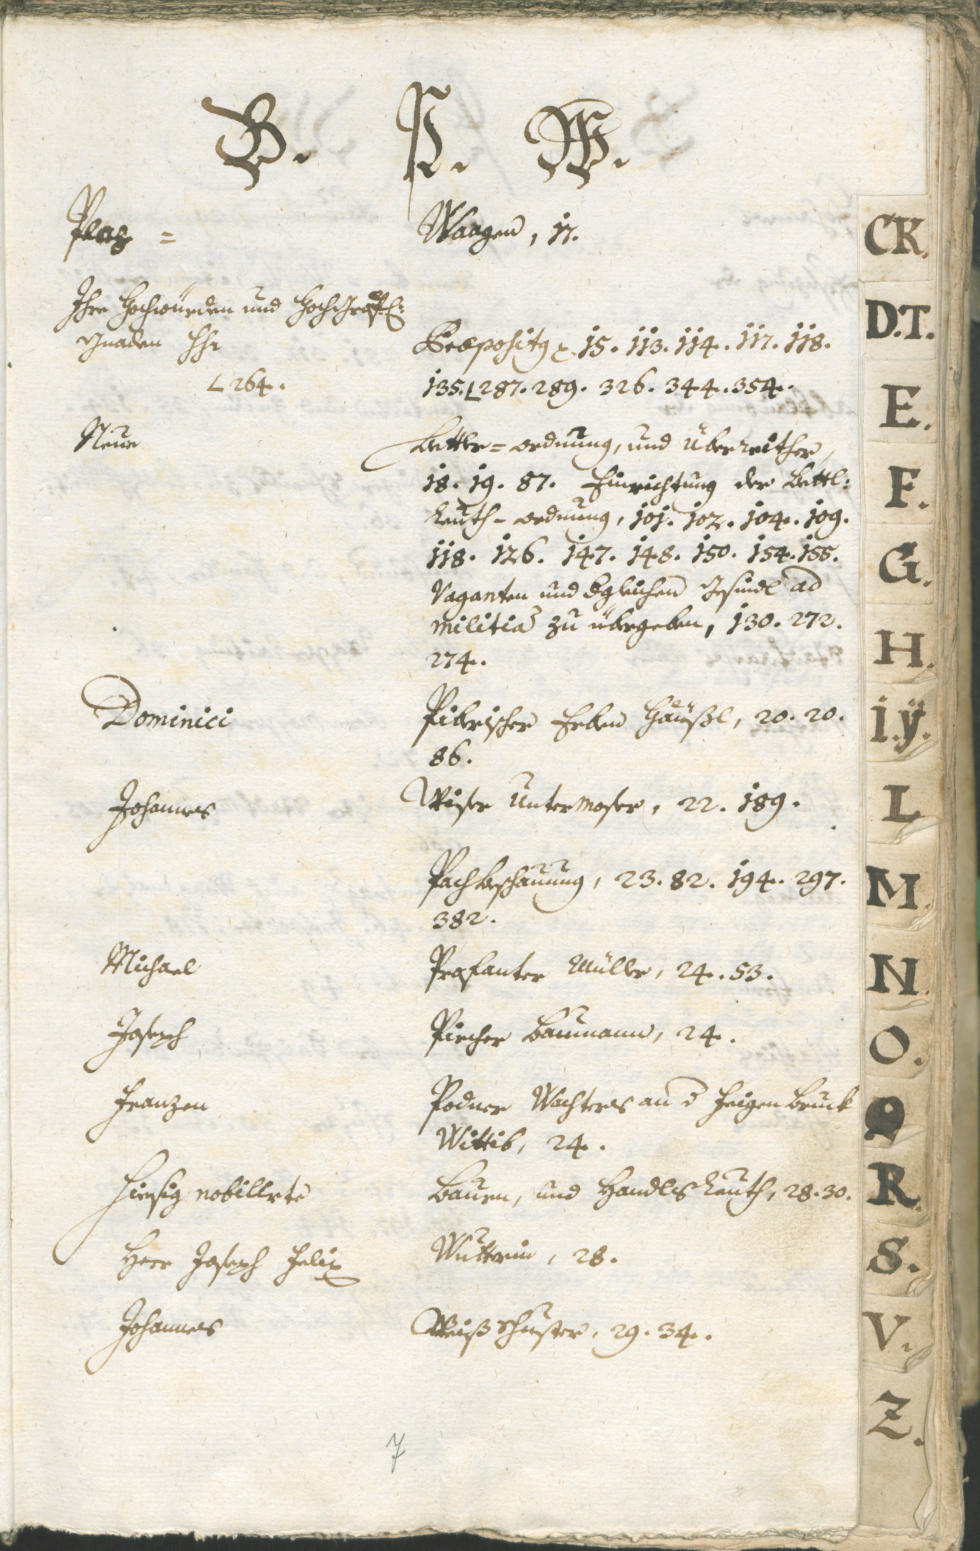 B. P. W.
Plaz = Waagen, 17.
Ihre Hochwürden und Hochgräfl:
Gnaden Hhr Praepositus 15. 113. 114. 117. 118.
∠264. 135.∠287. 289. 326. 344. 354.
Neue Bettler=ordnung, und Überreither,
18. 19. 87. Einrichtung der Bettl:
Leuth-ordnung, 101. 102. 104. 109.
118. 126. 147. 148. 150. 154. 155.
Vaganten und dgleichen Gesindl ad
militiā zu übergeben, 130. 272.
274.
Dominici Pibrischer Erben Häüßl, 20. 20.
86.
Johannes Wiser Untermoser, 22. 189.
Pachbschauung, 23. 82. 194. 297.
382.
Michael Profanter Müller, 24. 53.
Joseph Pircher Baumann, 24.
Franzen Podner Wachters an d Heigen Bruck
Wittib, 24.
Hiesig nobillrte Bauen, und Handls Leuth, 28. 30.
Herr Joseph Felix Wutterin, 28.
Johannes Weiß Schuster, 29. 34.
7
CK.
D.T.
E.
F.
G.
H.
i.ÿ.
L
M.
N
O.
Q
R
S.
V.
Z.